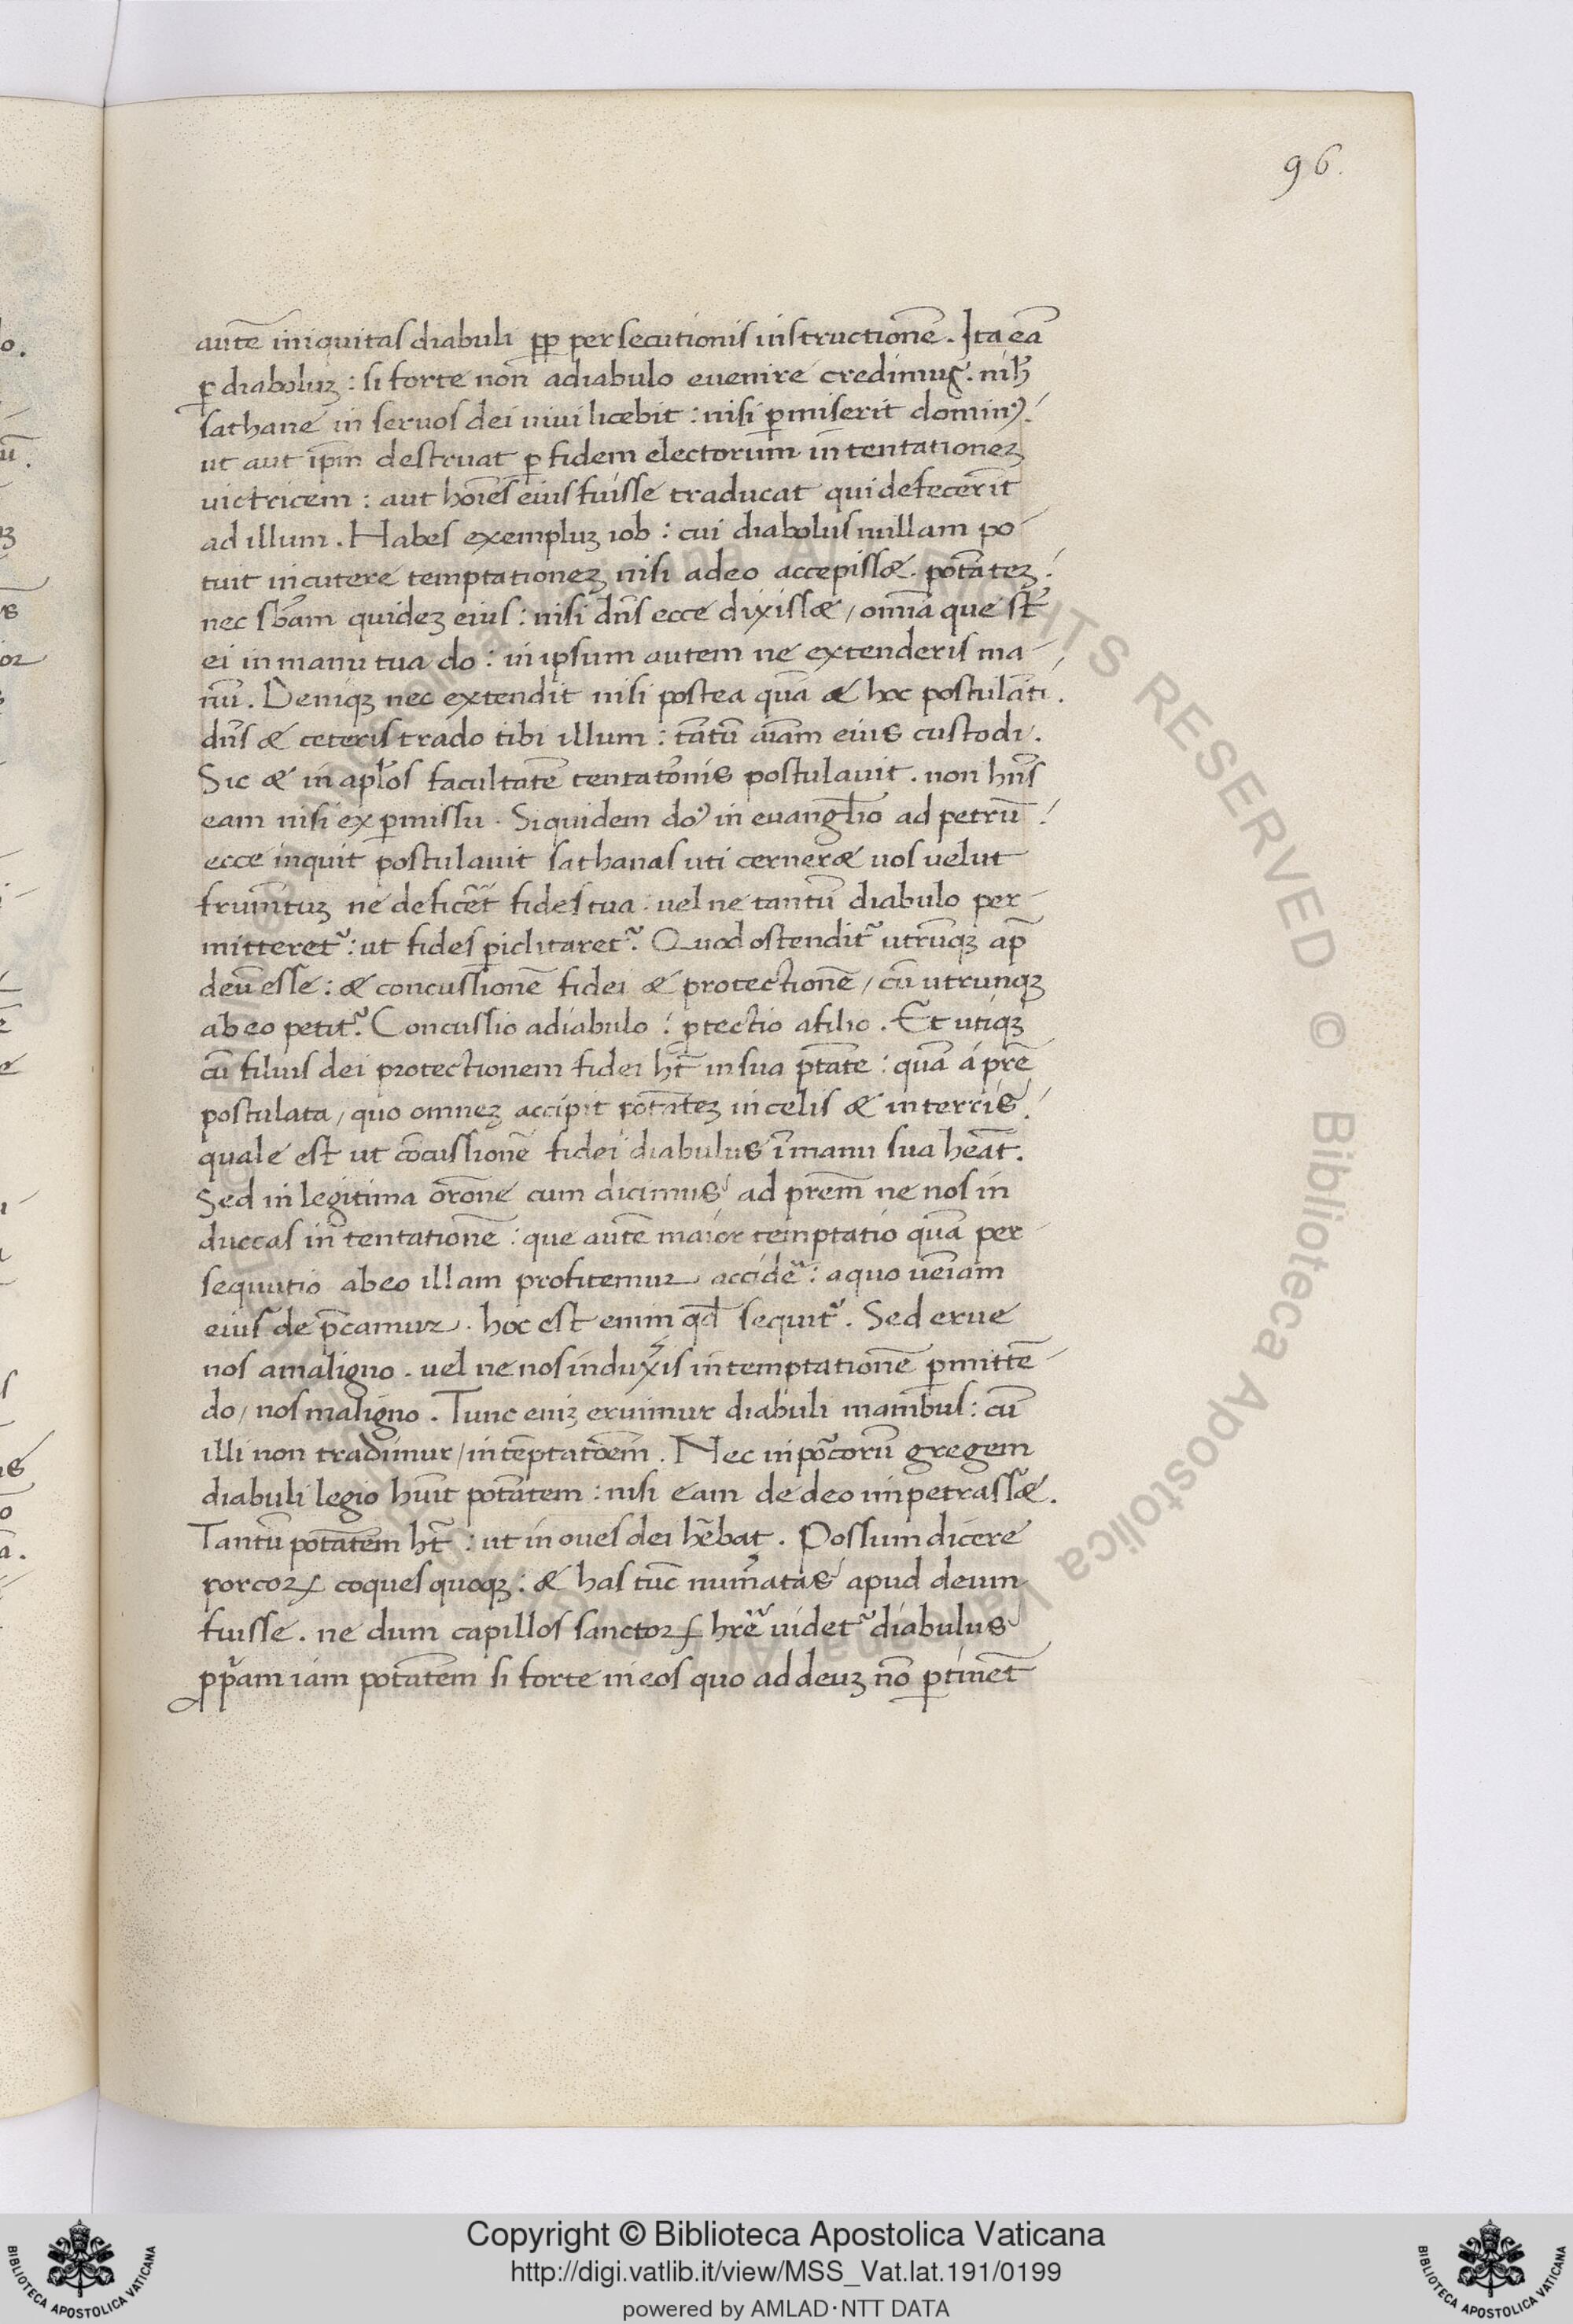 96.
autē iniquitas diabuli ꝓp persecutionis instructionē. Ita eā
ꝑ diaboluꝫ : si forte non adiabulo euenire credimus. nih̄
sathane in seruos dei uiui licebit : nisi ꝑmiserit dominꝰ.
ut aut ip̄m destruat ꝑ fidem electorum in tentationeꝫ
uictricem : aut hoīes eius fuisse traducat qui defecerīt
ad illum . Habes exempluꝫ iob : cui diabolus nullam po-
tuit incutere temptationeꝫ nisi adeo accepissæ. potāteꝫ :
nec sb̄am quideꝫ eius : nisi dn̄s ecce dixissæ / omīa que st̄
ei in manu tua do : in ipsum autem ne extenderis ma-
nū. Deniqꝫ nec extendit nisi postea quā æ hoc postulāti.
dn̄s æ ceteris trado tibi illum : tātū aīam eius custodi.
Sic æ in apl̄os facultatē tentatōnis postulauit . non hn̄s
eam nisi ex ꝑmissu . Siquidem doꝰ in euangl̄io ad petrū :
ecce inquit postulauit sathanas uti cerneræ uos uelut
frumētuꝫ ne deficēt fides tua : uel ne tantū diabulo per-
mitteret᷑ : ut fides ꝑiclitaret᷑. Quod ostendit᷑ utrūqꝫ ap̄
deū esse : æ concussionē fidei æ protectionē / cū utrunqꝫ
ab eo petit᷑. Concussio adiabulo : ꝓtectio afilio . Et utiqꝫ
cū filius dei protectionem fidei ht̄ in sua ptāte : quā á pr̄e
postulata / quo omneꝫ accipit potāteꝫ in celis æ interris :
quale est ut cōcussionē fidei diabulus ī manu sua heāt.
Sed in legitima orōne cum dicimus ad prēm ne nos in
duccas in tentationē : que autē maior temptatio quā per-
sequutio abeo illam profitemur accidē᷑ : aquo ueīam
eius de p̄camur . hoc est enim qd̄ sequit᷑ . Sed erue
nos amaligno . uel ne nos induxis in temptationē ꝑmittē-
do / nos maligno . Tunc eniꝫ eruimur diabuli manibus : cū
illi non tradimur / in tēptatōem . Nec in porcorū gregem
diabuli legio huīt potātem : nisi eam de deo impetrassæ.
Tantū potātem ht̄ : ut in oues dei hēbat . Possum dicere
porcoꝝ coques quoqꝫ : æ has tūc num̄atas apud deum
fuisse . ne dum capillos sanctoꝝ hrē uidet᷑ diabulus
ꝓp̄am iam potātem si forte in eos quo ad deuꝫ nō ꝑtinet
Copyright © Biblioteca Apostolica Vaticana
http://digi.vatlib.it/view/MSS_Vat.lat.191/0199
powered by AMLAD·NTT DATA
BIBLIOTECA APOSTOLICA VATICANA
BIBLIOTECA APOSTOLICA VATICANA